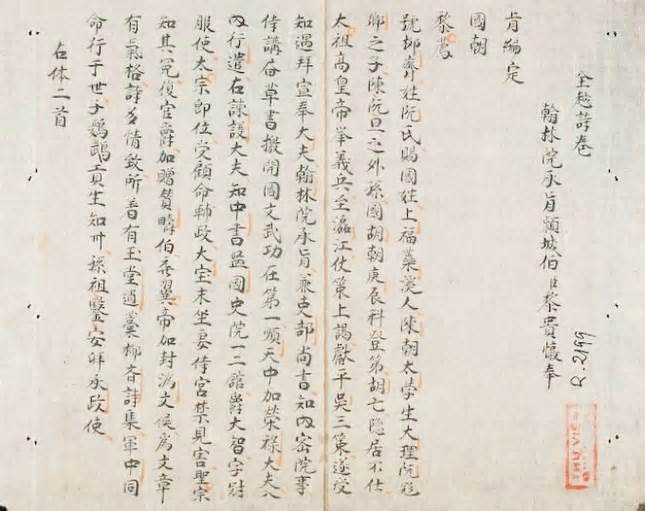 全越詩卷
翰林院承旨頴城伯臣黎貴惇奉
旨編定
國朝
黎廌
號抑齋姓阮氏賜國姓上福蘂溪人陳朝太學生大理阮飛
卿之子陳阮旦之外孫國胡朝庚辰科登第胡亡隐居不仕
太祖高皇帝举義兵至瀘江仗策上謁獻平吳三策遂受
知遇拜宣奉大夫翰林院承旨兼吏部尚書知內密院事
侍講 草書撥開國文武功在第一順天中加榮祿大夫入
內行遣右諫議大夫知中書監國史院一二舘爵大智字尉
服使太宗即位受顧命輔政大宝末坐妾侍宮禁見害聖宗
知其冤復官爵加贈贊疇伯 翼帝加封濟文侯為文章
有氣格詩多情致所着有玉堂遺藁柳斉詩集軍中同
命行于世子 鵡貢生知州孫祖鑒安 承政使
右体二首
R.2199